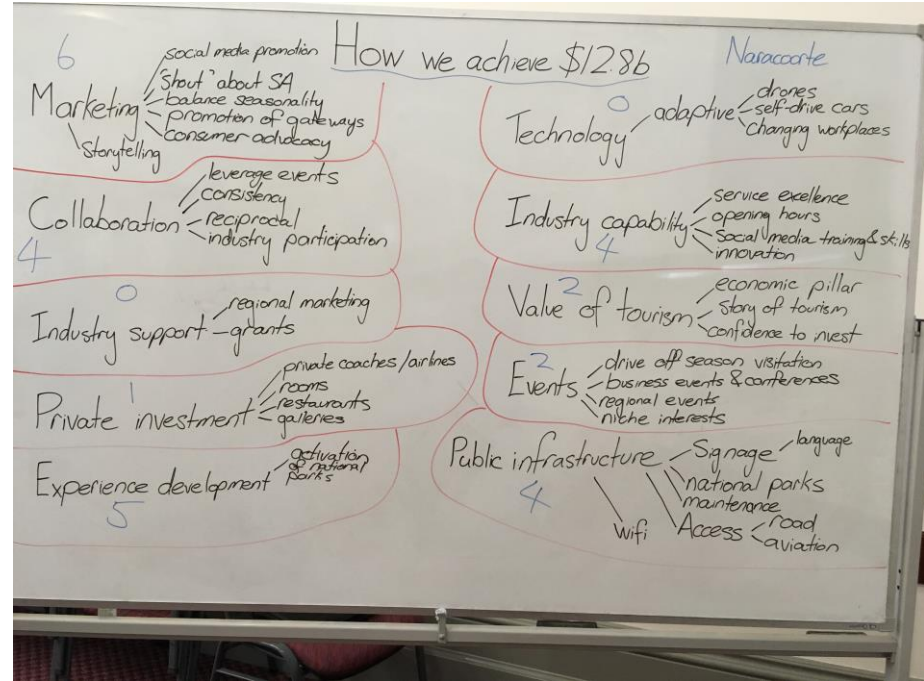 How we achieve $12.8b
Naracoorte
6
Marketing
social media promotion
"Shout" about SA
balance seasonality
promotion of gateways
consumer advocacy
Storytelling
Collaboration
4
leverage events
consistency
reciprocal
industry participation
0
Industry support
regional marketing
grants
1
Private investment
private coaches/airlines
rooms
restaurants
galleries
Experience development
5
activation
of national
parks
0
Technology
adaptive
drones
self-drive cars
changing workplaces
Industry capability
4
service excellence
opening hours
Social media training & skills
innovation
2
Value of tourism
economic pillar
story of tourism
confidence to invest
2
Events
drive off season visitation
business events & conferences
regional events
niche interests
Public infrastructure
4
Signage
language
national parks
maintenance
Access
road
aviation
wifi